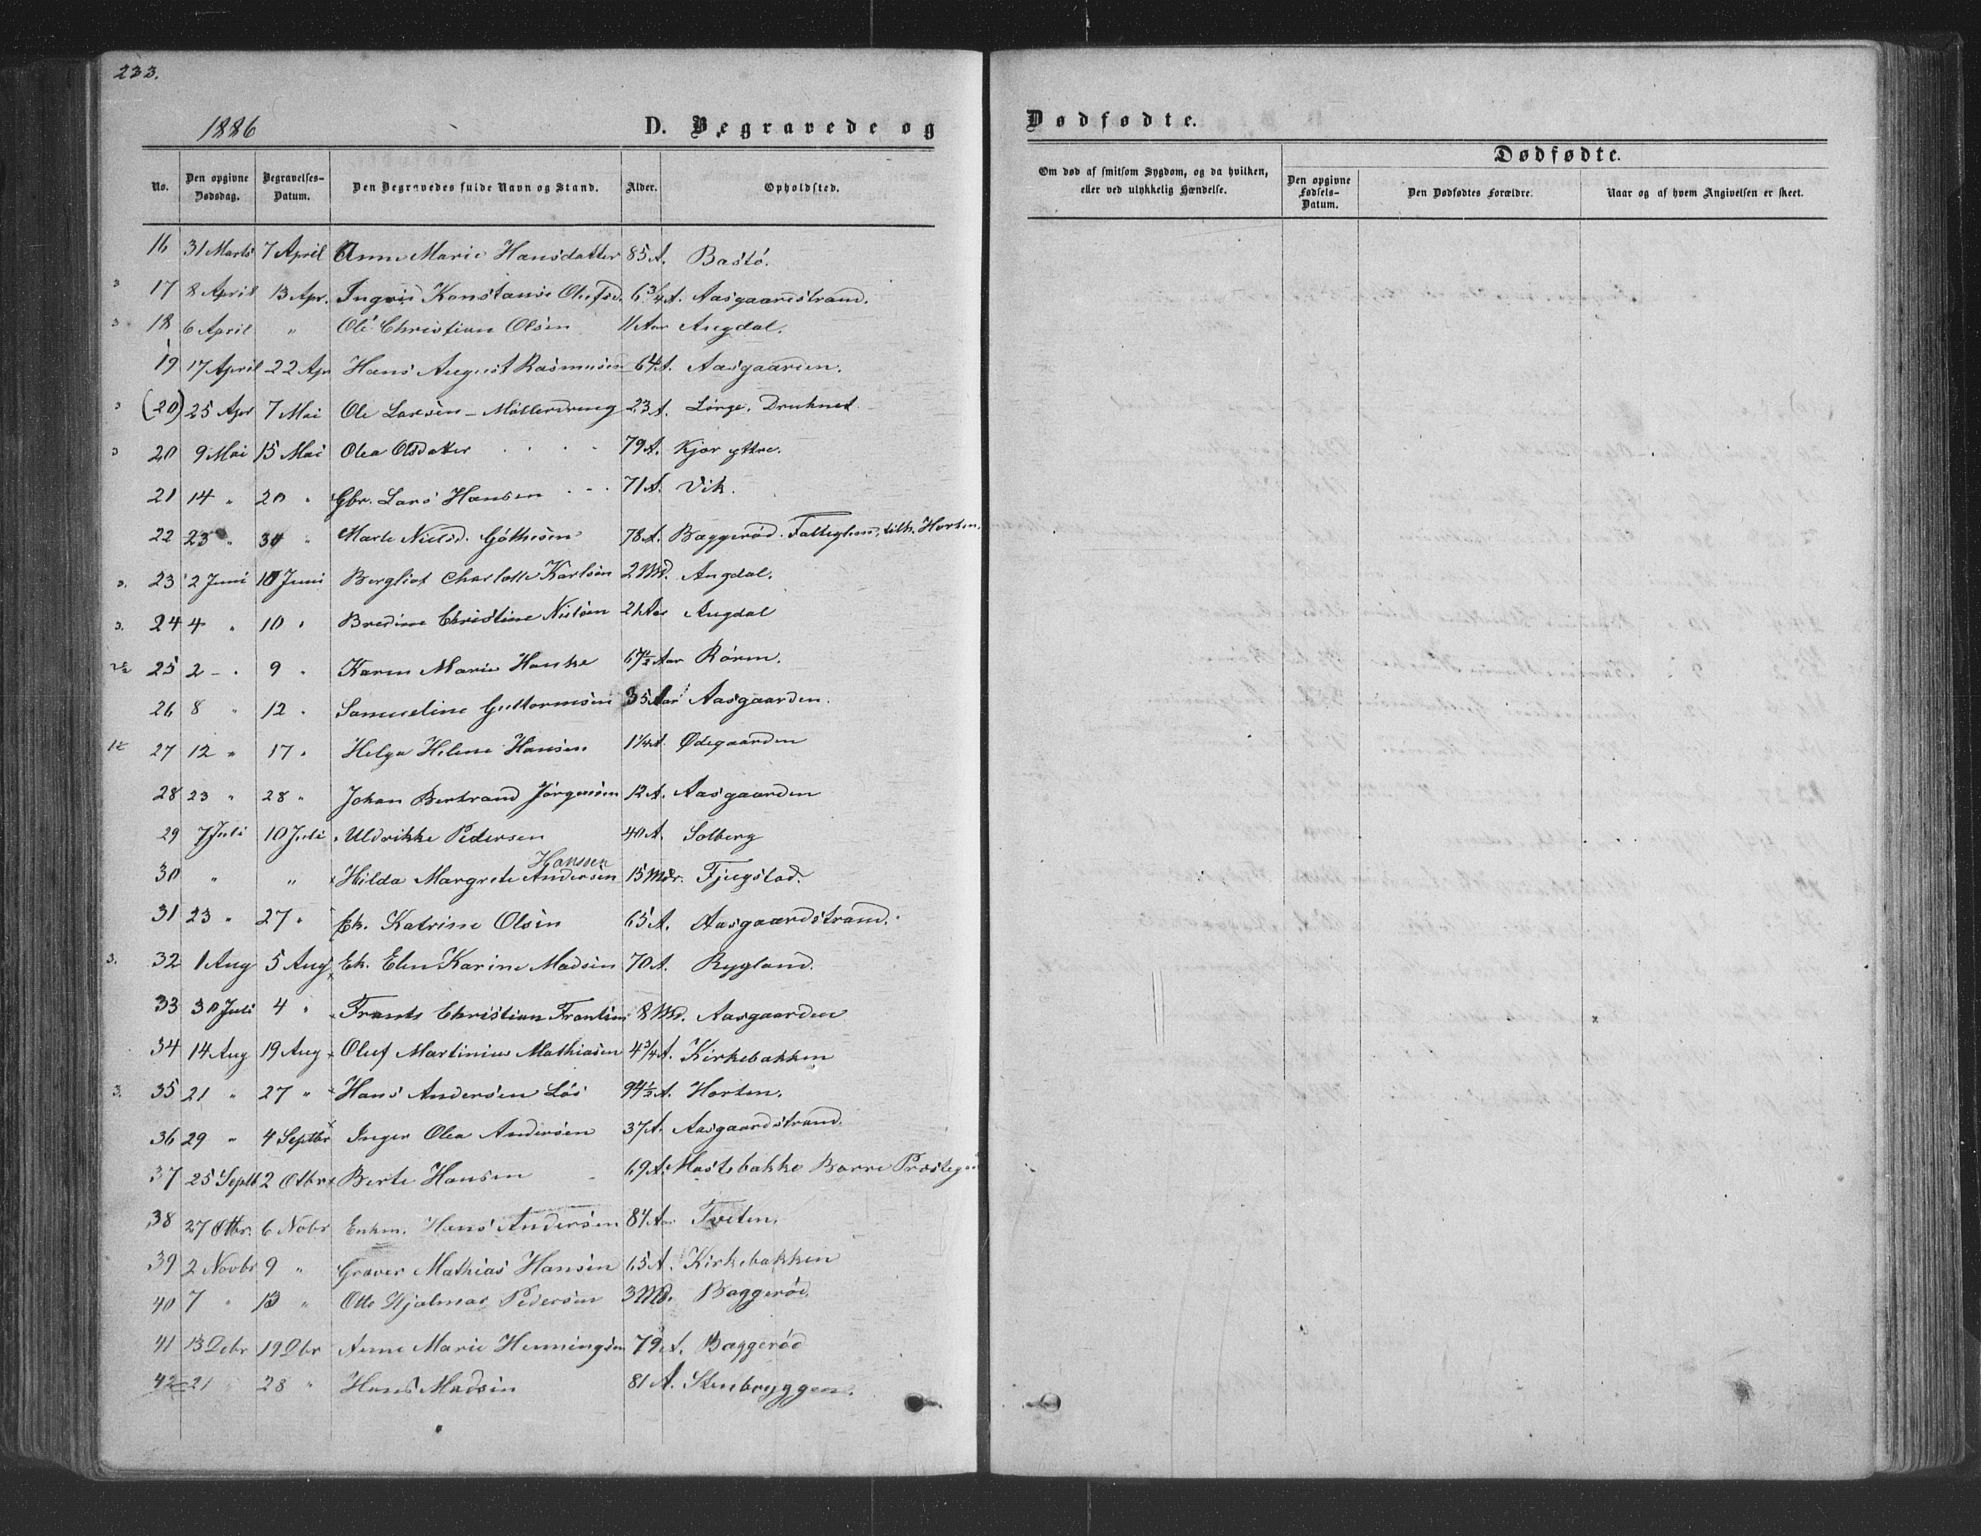 233.
1886
D. Begravede og
Dødfødte.
No.
Den opgivne Dødsdag.
Begravelses-Datum.
Den Begravedes fulde Navn og Stand.
Alder.
Opholdsted.
Om død af smitsom Sygdom, og da hvilken, eller ved ulykkelig Hændelse.
Dødfødte.
Den opgivne Fødsels-Datum.
Den Dødfødtes Forældre.
Naar og af hvem Angivelsen er skeet.
16 31 Marts 7 April Anne Marie Hansdatter 85 A. Bastö.
3 17 8 April 13 Apr. Ingvis Konstanse Olufsd. 6 3/4 A. Aasgaardstrand.
3 18 6 April " Ole Christian Olsen 11 Aar Augdal.
19 17 April 22 Apr Hans August Rasmussen 64 A. Aasgaarden.
3 (20) 25 Apr 7 Mai Ole Larsen - Møllerdreng 23 A. Lörge. Druknet.
3 20 9 Mai 15 Mai Olea Olsdatter 79 A. Kjær yttre.
21 14 " 20 " Gbr. Lars Hansen 71 A. Vik.
22 23 " 30 " Marte Nielsd. Göthesen 78 A. Baggeröd. Fattiglem, tilh. Horten.
3. 23 2 Juni 10 Juni Bergliot Charlotte Karlsen 2 Md. Augdal.
3. 24 4 " 10 " Bredine Christine Nilsen 21 Aar Augdal
25 2 " 9 " Karen Marie Hanke 67 1/2 Aar Rören.
26 8 " 12 " Samueline Guttormsen 35 Aar Aasgaarden.
27 12 " 17 " Helga Helene Hansen 1 1/4 A. Ødegaarden
28 23 " 28 " Johan Bertrand Jörgensen 12 A. Aasgaarden
29 7 Juli 10 Juli Uldrikke Pedersen 40 A. Solberg
Hansen
30 " " Hilda Margrete Andersen 15 Mdr. Fjugstad.
31 23 " 27 " Ek. Katrine Olsen 65 A. Aasgaardstrand.
3. 32 1 Aug 5 Aug Ek. Elen Karine Madsen 70 A. Rygland.
33 30 Juli 4 " Frants Christian Frantsen 8 Md. Aasgaarden
34 14 Aug 19 Aug Oluf Martinius Mathiasen 4 3/4 A. Kirkebakken
3. 35 21 " 27 " Hans Andersen Lös 94 1/2 A. Horten.
36 29 " 4 Septbr Inger Olea Andersen 37 A. Aasgaardstrand.
37 25 Septb 2 Otbr Berte Hansen 69 A. Mastebakke Borre Præstegj
38 27 Otbr. 6 Nobr Enkm. Hans Andersen 84 Aar Tveten.
39 2 Novbr 9 " Graver Mathias Hansen 65 A. Kirkebakken
40 7 " 13 " Otto Hjalmar Pedersen 3 Md. Baggeröd.
41 13 Debr 19 Dbr Anne Marie Henningsen 79 A. Baggeröd
42 21 " 28 " Hans Madsen 81 A. Stenbryggen.